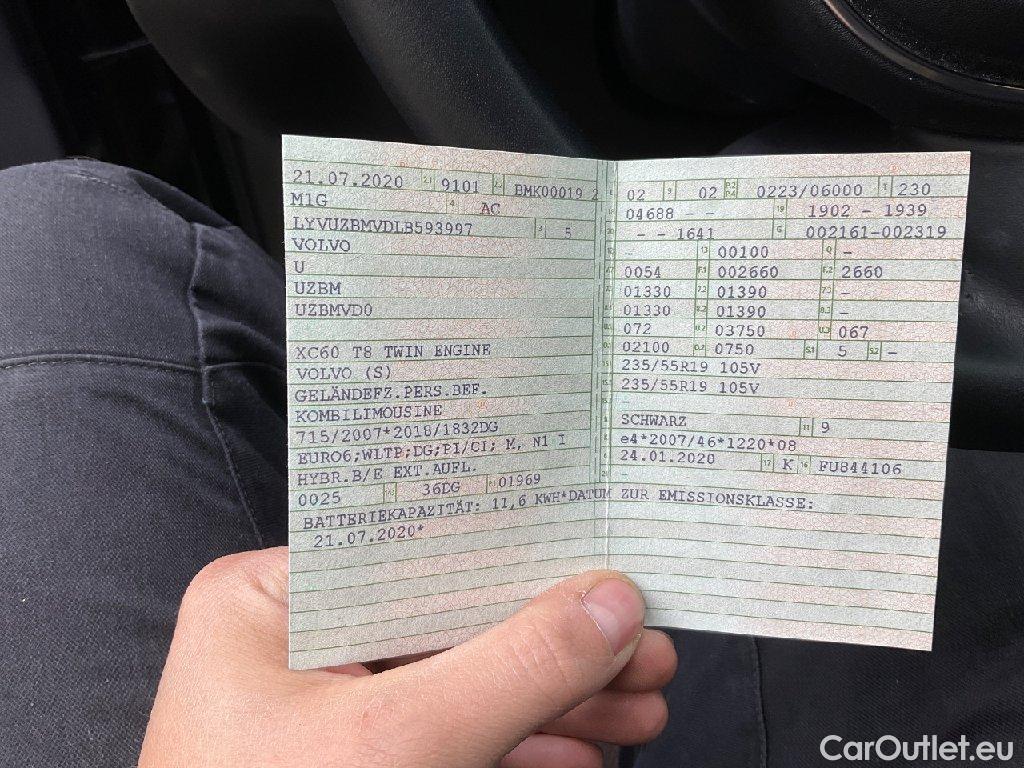 21.07.2020 9101 BMK00019 2
M1G AC
LYVUZBMVDLB593997 5
VOLVO
U
UZBM
UZBMVD0
XC60 T8 TWIN ENGINE
VOLVO (S)
GELÄNDEFZ.PERS.BEF.
KOMBILIMOUSINE
715/2007*2018/1832DG
EURO6;WLTP;DG;PI/CI; M, N1 I
HYBR.B/E EXT.AUFL.
0025 36DG 01969
BATTERIEKAPAZITÄT: 11,6 KWH*DATUM ZUR EMISSIONSKLASSE:
21.07.2020*
02 02 0223/06000 230
04688 - - 1902 - 1939
- - 1641 002161-002319
- 00100 -
0054 002660 2660
01330 01390 -
01330 01390 -
072 03750 067
02100 0750 5 -
235/55R19 105V
235/55R19 105V
SCHWARZ 9
e4*2007/46*1220*08
24.01.2020 K FU844106
-
CarOutlet.eu